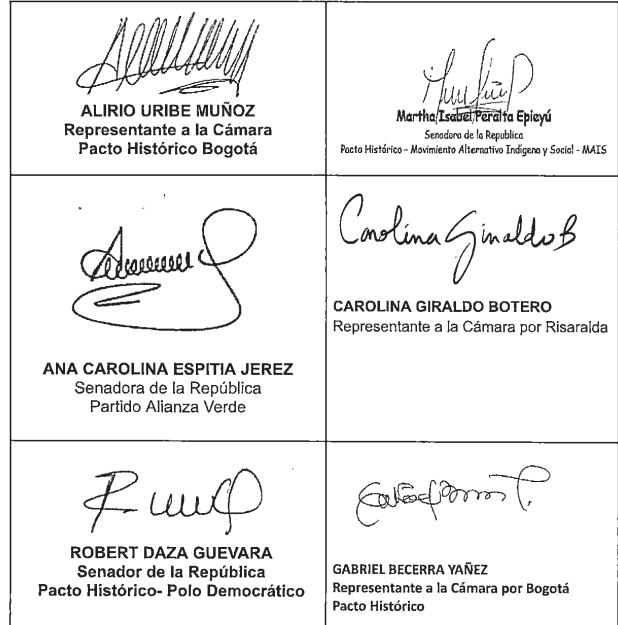 ALIRIO URIBE MUÑOZ
Representante a la Cámara
Pacto Histórico Bogotá
Martha Isabel Peralta Epieyú
Senadora de la Republica
Pacto Histórico – Movimiento Alternativo Indígena y Social - MAIS
ANA CAROLINA ESPITIA JEREZ
Senadora de la República
Partido Alianza Verde
Carolina Giraldo B
CAROLINA GIRALDO BOTERO
Representante a la Cámara por Risaralda
ROBERT DAZA GUEVARA
Senador de la República
Pacto Histórico- Polo Democrático
GABRIEL BECERRA YAÑEZ
Representante a la Cámara por Bogotá
Pacto Histórico